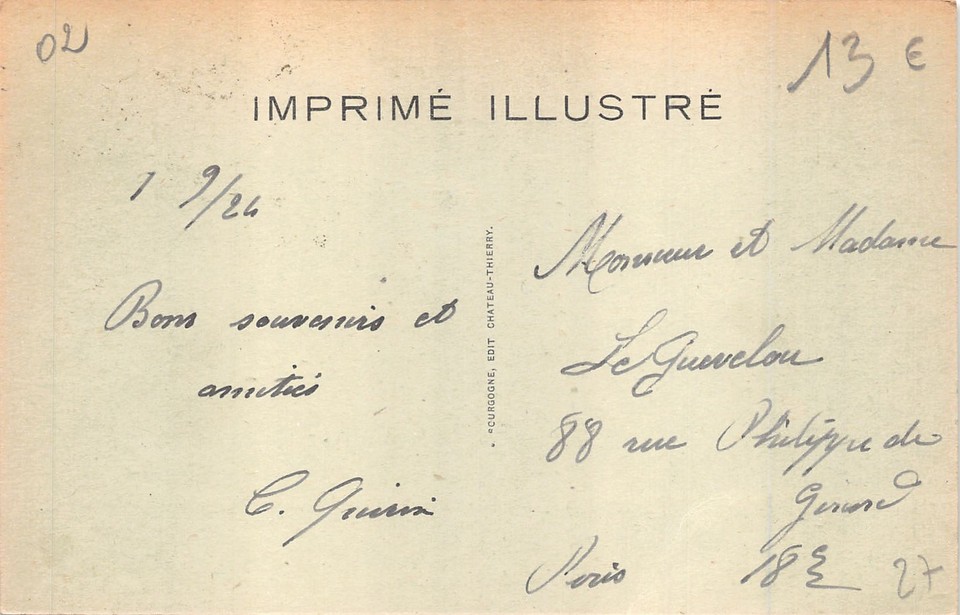 02
13 €
IMPRIMÉ ILLUSTRÉ
1 9/24
Bons souvenirs et
amitiés
C. Guérin
BOURGOGNE, EDIT CHATEAU-THIERRY.
Monsieur et Madame
Le Guevelou
88 rue Philippe de
Girard
Paris 18e
27